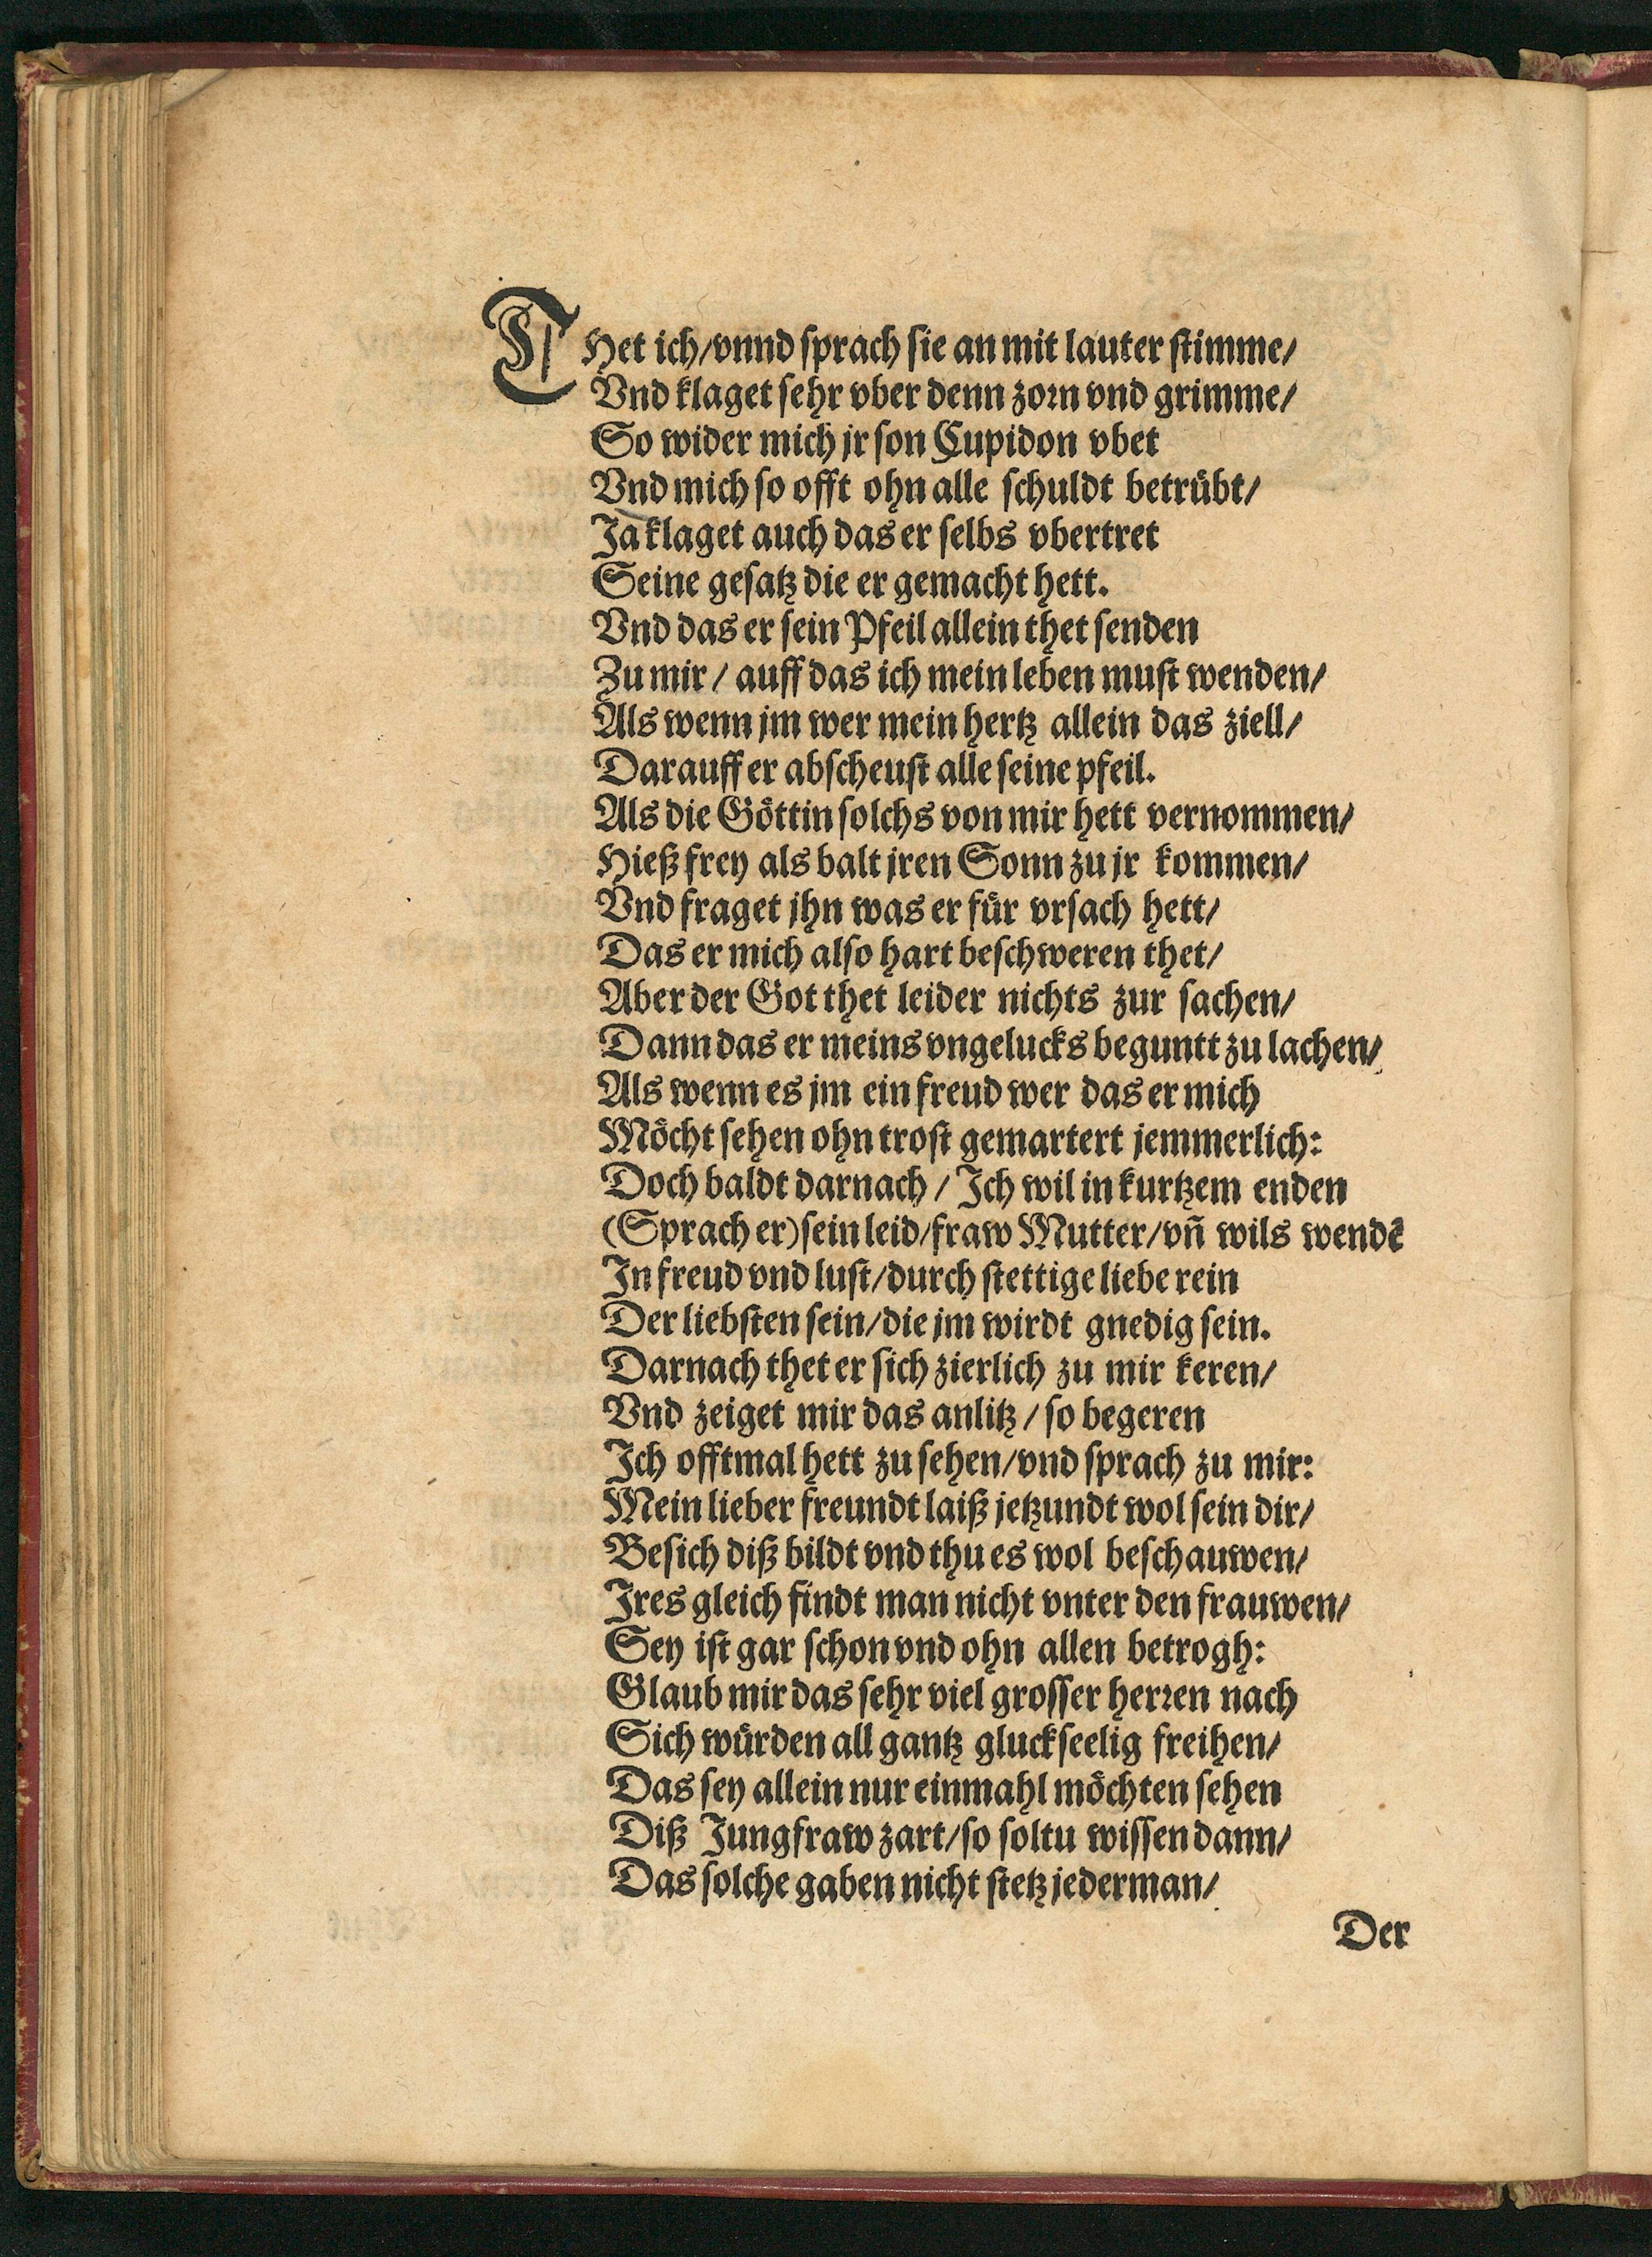 THet ich/vnnd sprach sie an mit lauter stimme/
Vnd klaget sehr vber denn zorn vnd grimme/
So wider mich jr son Cupidon vbet
Vnd mich so offt ohn alle schuldt betrübt/
Ja klaget auch das er selbs vbertret
Seine gesatz die er gemacht hett.
Vnd das er sein Pfeil allein thet senden
Zu mir/ auff das ich mein leben must wenden/
Als wenn jm wer mein hertz allein das ziell/
Darauff er abscheust alle seine pfeil.
Als die Göttin solchs von mir hett vernommen/
Hieß frey als balt jren Sonn zu jr kommen/
Vnd fraget jhn was er für vrsach hett/
Das er mich also hart beschweren thet/
Aber der Got thet leider nichts zur sachen/
Dann das er meins vngelucks beguntt zu lachen/
Als wenn es jm ein freud wer das er mich
Möcht sehen ohn trost gemartert jemmerlich:
Doch baldt darnach/ Ich wil in kurtzem enden
(Sprach er) sein leid/fraw Mutter/vñ wils wendē
In freud vnd lust/durch stettige liebe rein
Der liebsten sein/die jm wirdt gnedig sein.
Darnach thet er sich zierlich zu mir keren/
Vnd zeiget mir das anlitz/ so begeren
Ich offtmal hett zu sehen/vnd sprach zu mir:
Mein lieber freundt laiß jetzundt wol sein dir/
Besich diß bildt vnd thu es wol beschauwen/
Jres gleich findt man nicht vnter den frauwen/
Sey ist gar schon vnd ohn allen betrogh:
Glaub mir das sehr viel grosser herren nach
Sich würden all gantz gluckseelig freihen/
Das sey allein nur einmahl möchten sehen
Diß Jungfraw zart/so soltu wissen dann/
Das solche gaben nicht stetz jederman/
Der